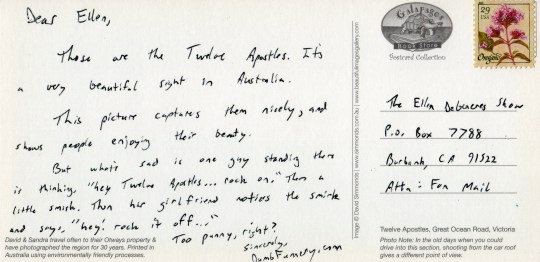 Dear Ellen,
These are the Twelve Apostles. It's
a very beautiful sight in Australia.
This picture captures them nicely, and
shows people enjoying their beauty.
But what's sad is one guy standing there
is thinking, "hey Twelve Apostles... rock on." Then a
little smirk. Then his girlfriend notices the smirk
and says, "hey! rock it off..."
Too punny, right?
Sincerely,
DumbFunnery.com
David & Sandra travel often to their Otways property &
have photographed the region for 30 years. Printed in
Australia using environmentally friendly processes.
Image © David Simmonds | www.simmonds.com.au | www.beautifulimagegallery.com
Galapagos
Book Store
Postcard Collection
29
USA
Oregold
The Ellen Degeneres Show
P.O. Box 7788
Burbank, CA 91522
Attn: Fan Mail
Twelve Apostles, Great Ocean Road, Victoria
Photo Note: In the old days when you could
drive into this section, shooting from the car roof
gives a different point of view.